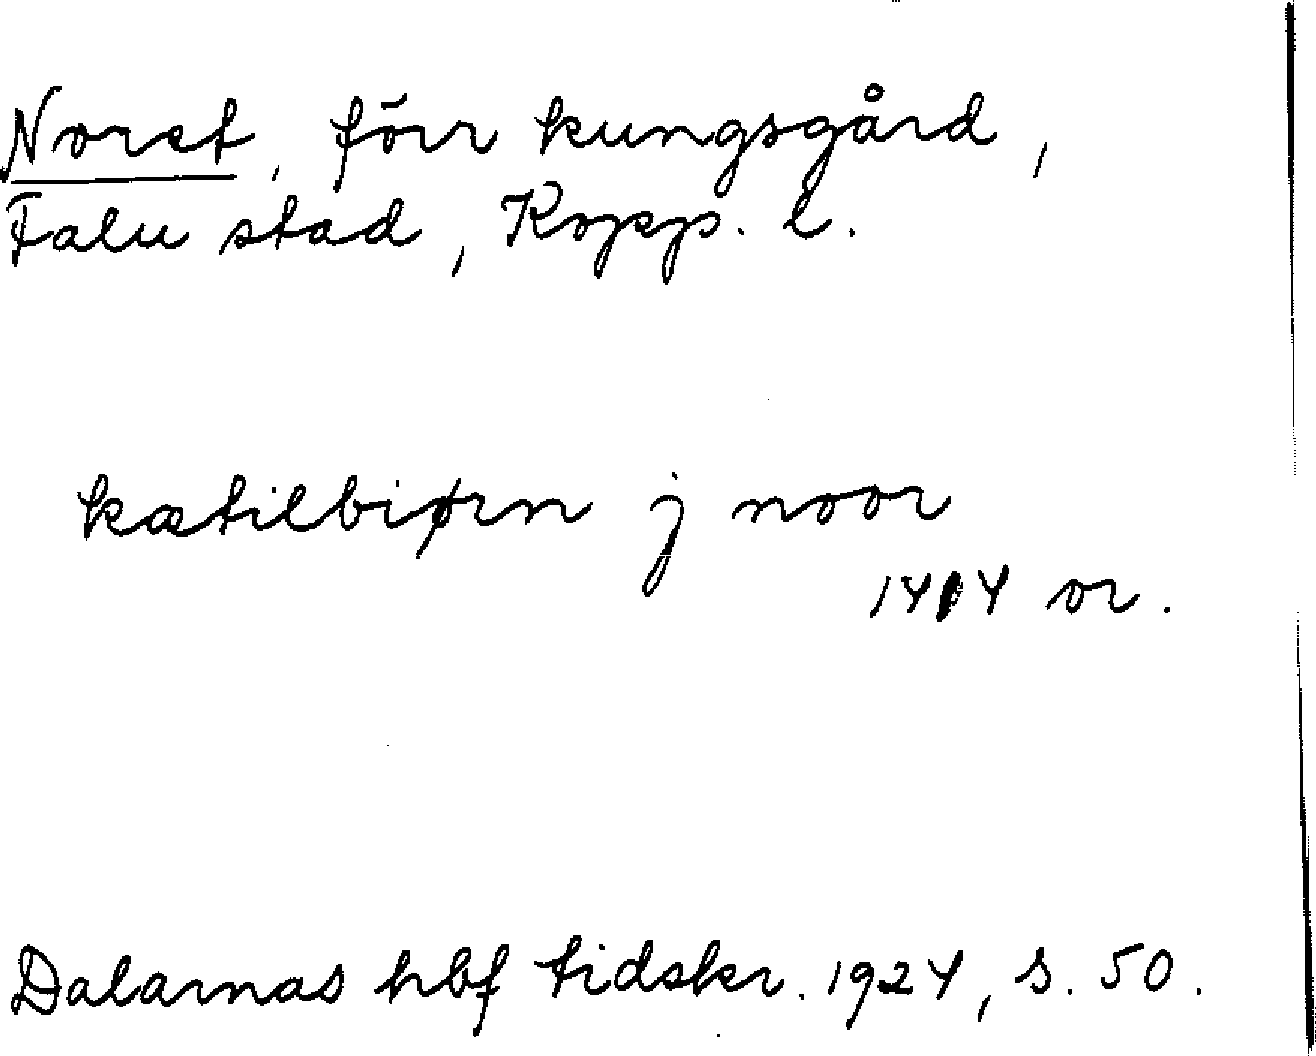 Noret, förr kungsgård,
Falu stad, Kopp. l.
kætilbiørn j noor
1414 or.
Dalarnas hbf tidskr. 1924, s. 50.